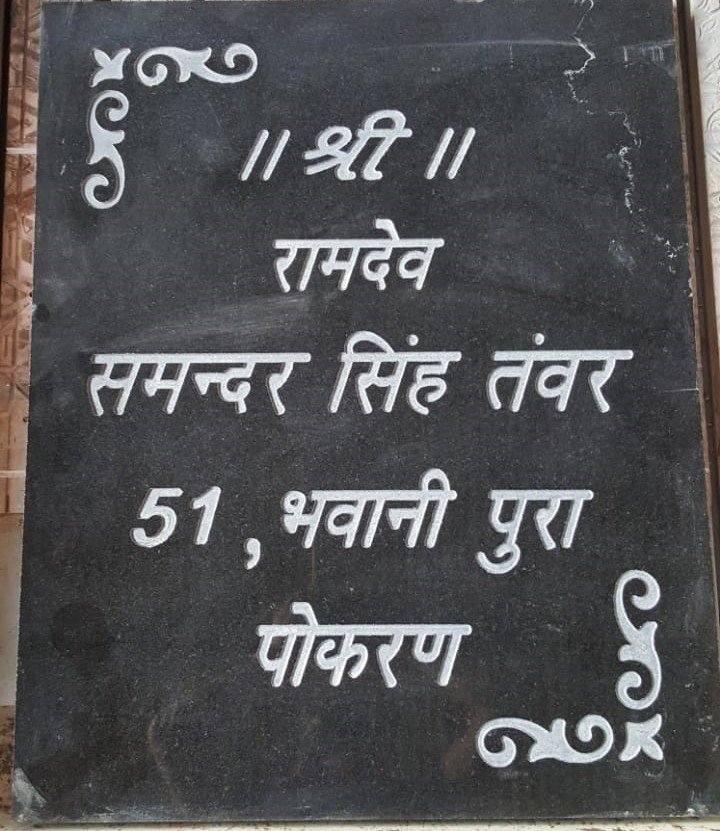 ॥ श्री ॥
रामदेव
समन्दर सिंह तंवर
51, भवानी पुरा
पोकरण